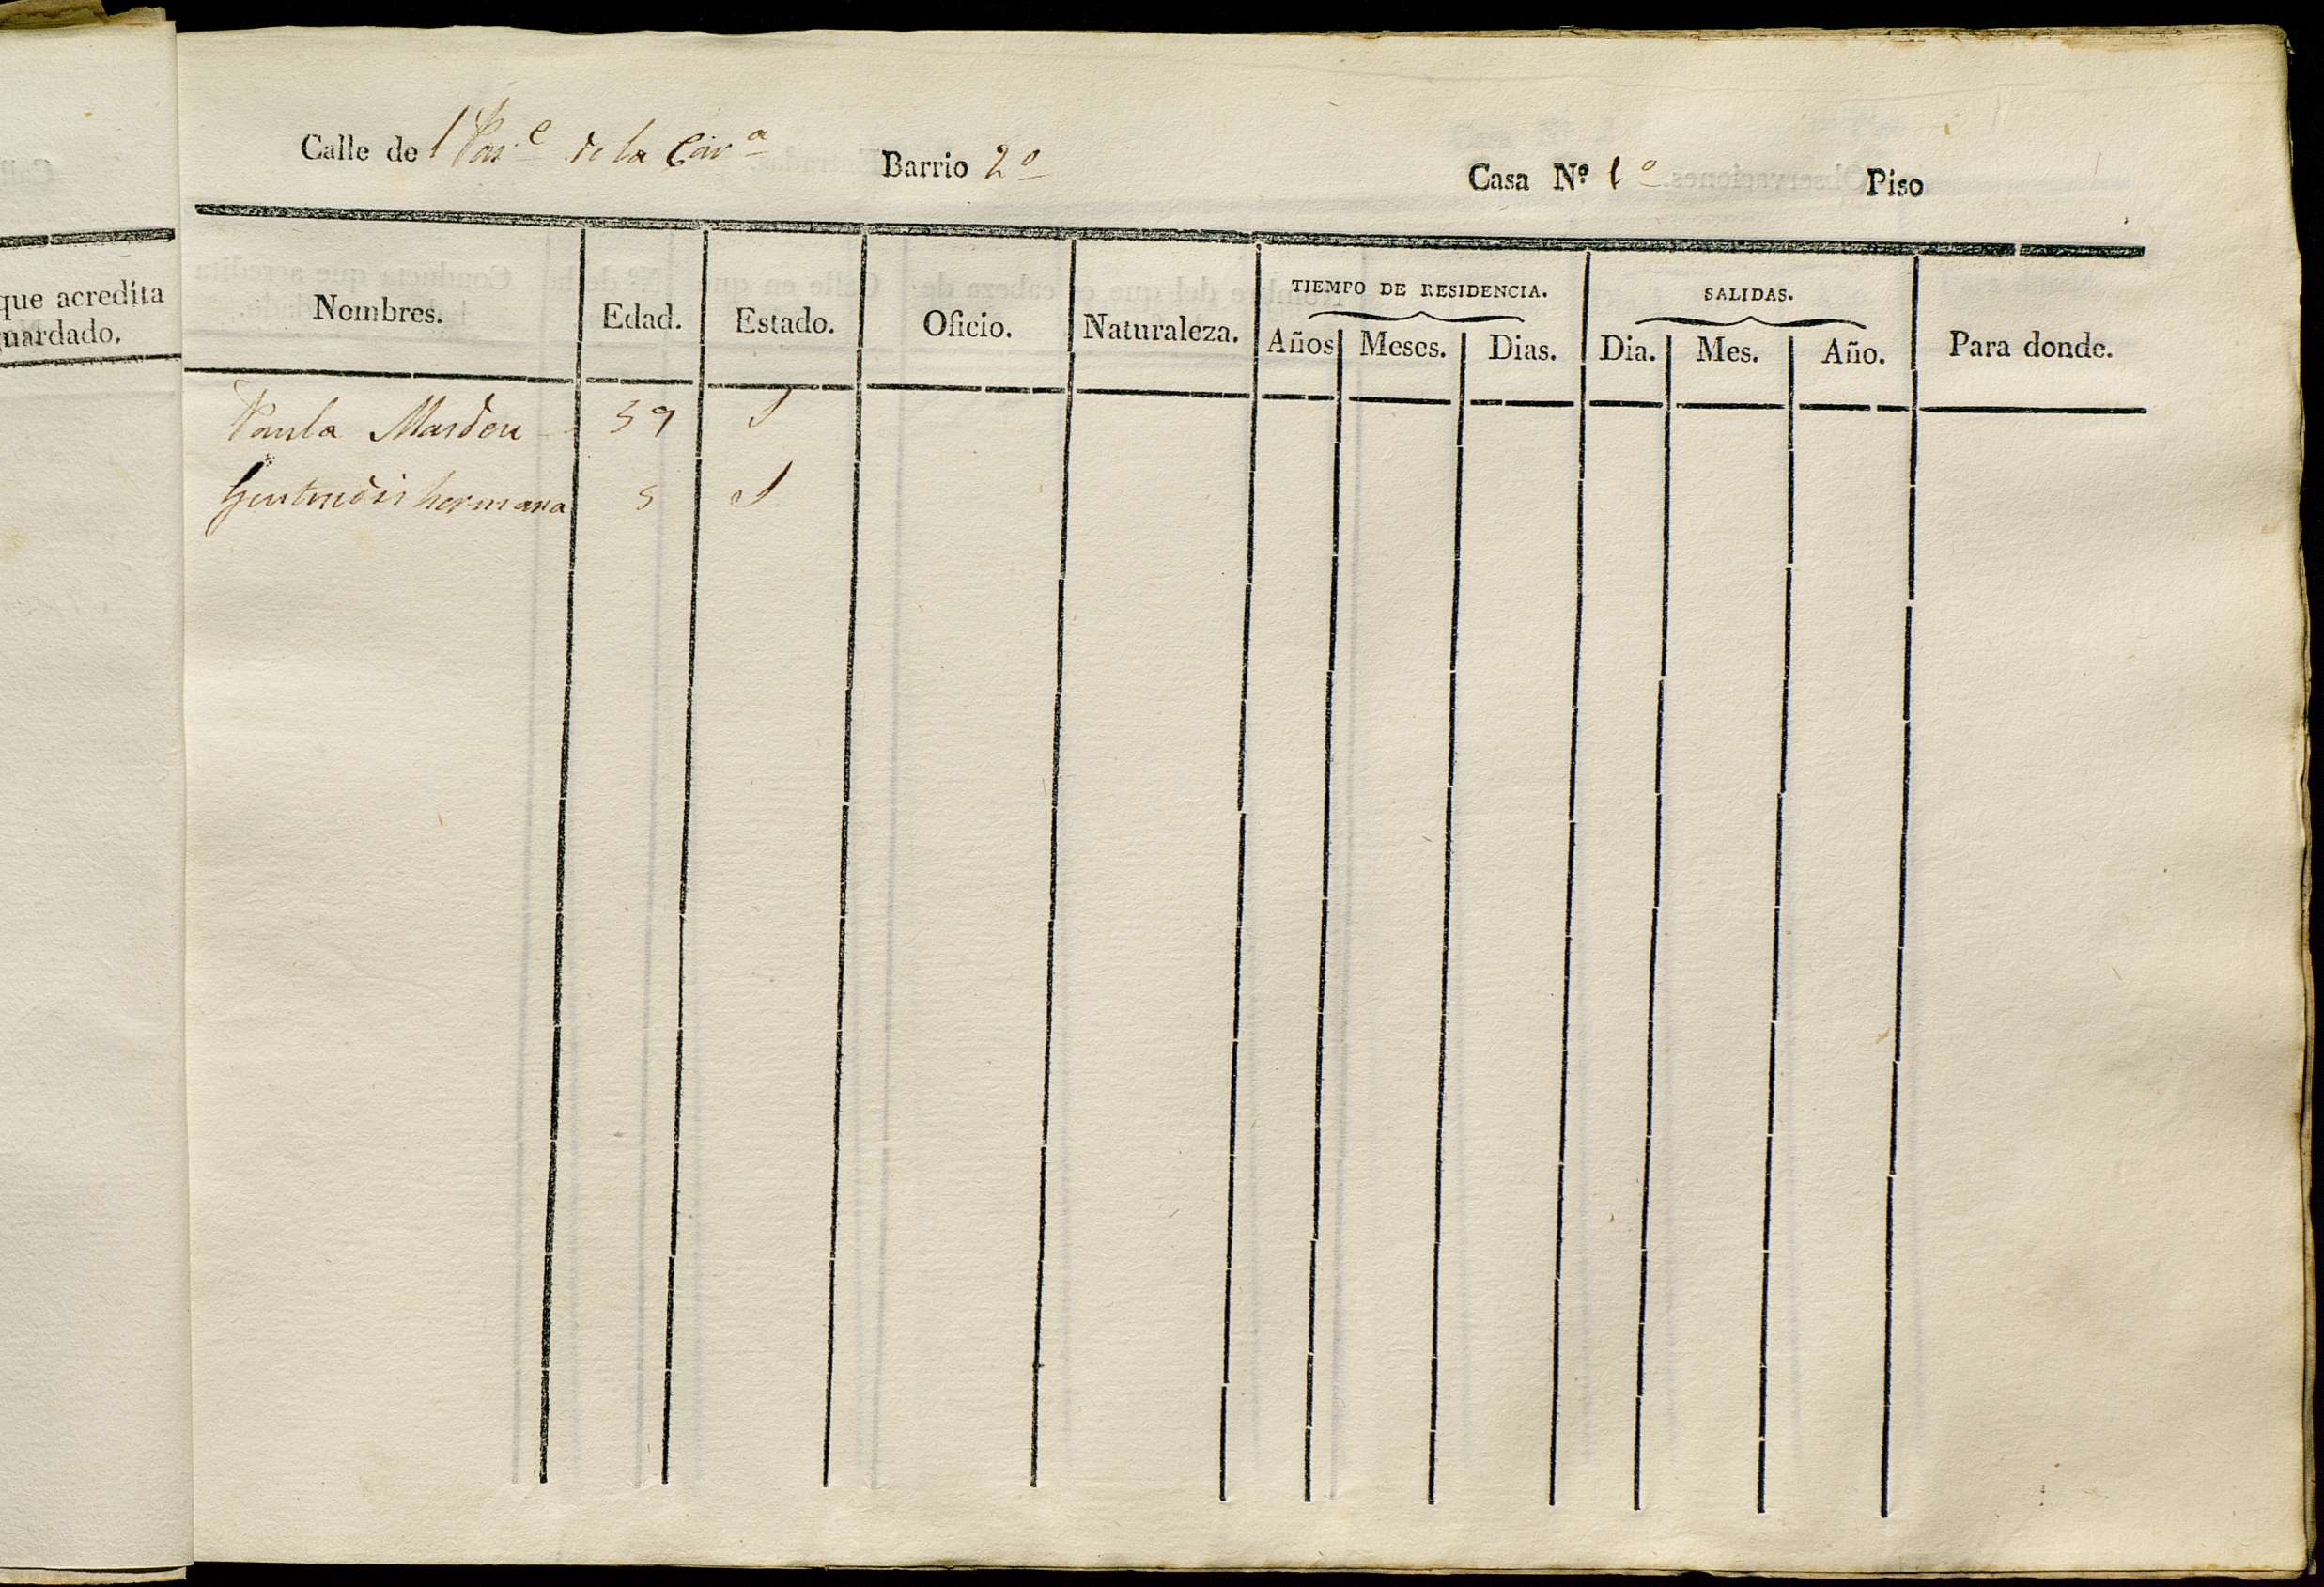 que acredita
uardado.
Calle de l Pas.e de la Car.a Barrio 2º Casa Nº 1º Piso
Nombres. Edad. Estado. Oficio. Naturaleza. TIEMPO DE RESIDENCIA. SALIDAS. Para donde.
Años Meses. Dias. Dia. Mes. Año.
Paula Masdeu 59 S
Gertrudis hermana 5 S